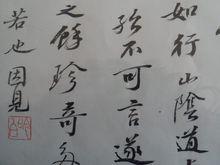 如行山陰道
殆不可言遂
之餘珍奇
若也因見